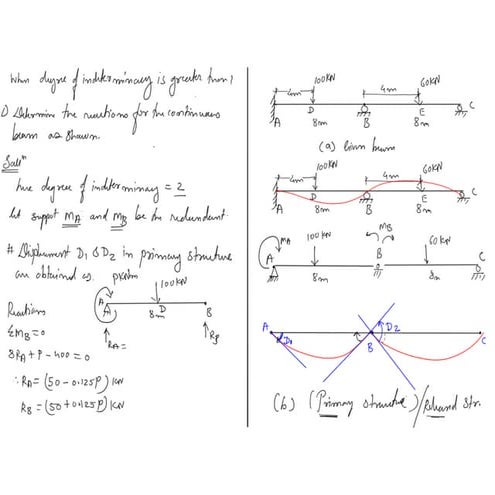 When degree of indeterminacy is greater than 1
1) Determine the reactions for the continuous
beam as shown.
Solⁿ
here degree of indeterminacy = 2
let support MA and MB be the redundant.
# Displacement D1 & D2 in primary structure
are obtained as.
PkNm
100KN
A
D
8m
B
RA=
RB
Reactions
ΣMB=0
8RA + P - 400 = 0
∴ RA = (50 - 0.125P) KN
RB = (50 + 0.125P) KN
100KN
4m
4m
60KN
A
D
8m
B
E
8m
C
(a) Given beam
100KN
4m
4m
60KN
A
D
8m
B
E
8m
C
MA
100KN
MB
B
60KN
A
8m
8m
C
A
D1
B
D2
C
(b) (Primary structure)/Released Str.